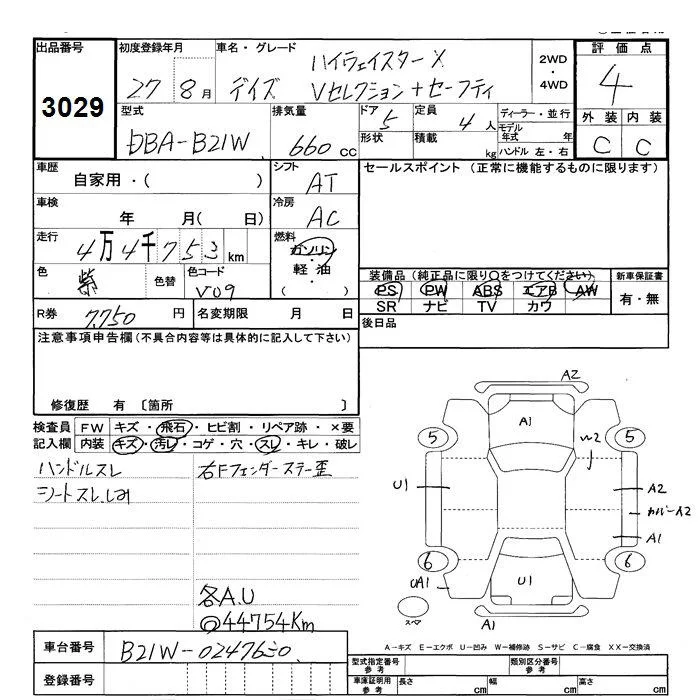 出品番号 初度登録年月 車名・グレード 2WD・4WD 評価点
3029 27 8月 デイズ ハイウェイスターX 4
Vセレクション+セーフティ
型式 排気量 ドア 5 定員 4人 ディーラー・並行 外装 内装
DBA-B21W 660cc 形状 積載 kg モデル年式 年 C C
ハンドル 左・右
車歴 自家用・( ) シフト AT セールスポイント (正常に機能するものに限ります)
車検 年 月( 日) 冷房 AC
走行 4万4千753km 燃料 ガソリン・軽・油・( )
色 紫 色替 色コード V09 装備品(純正品に限り○をつけてください) 新車保証書
PS PW ABS エアB AW 有・無
SR ナビ TV カワ
R券 7,750円 名変期限 月 日 後日品
注意事項申告欄(不具合内容等は具体的に記入して下さい)
修復歴 有〔箇所 〕
検査員記入欄 FW キズ・飛石・ヒビ割・リペア跡・×要
内装 キズ・汚レ・コゲ・穴・スレ・キレ・破レ
ハンドルスレ 右Fフェンダーステー歪
シートスレ、しみ
各A.U
◎44754Km
A2
A1
5 5
W2
U1 A2
カバーA2
A1
6 6
UA1 U1
スペア A1
A-キズ E-エクボ U-凹み W-補修跡 S-サビ C-腐食 XX-交換済
車台番号 B21W-0247630
登録番号
型式指定番号 参考 類別区分番号 参考
車庫証明用 参考 長さ cm 幅 cm 高さ cm